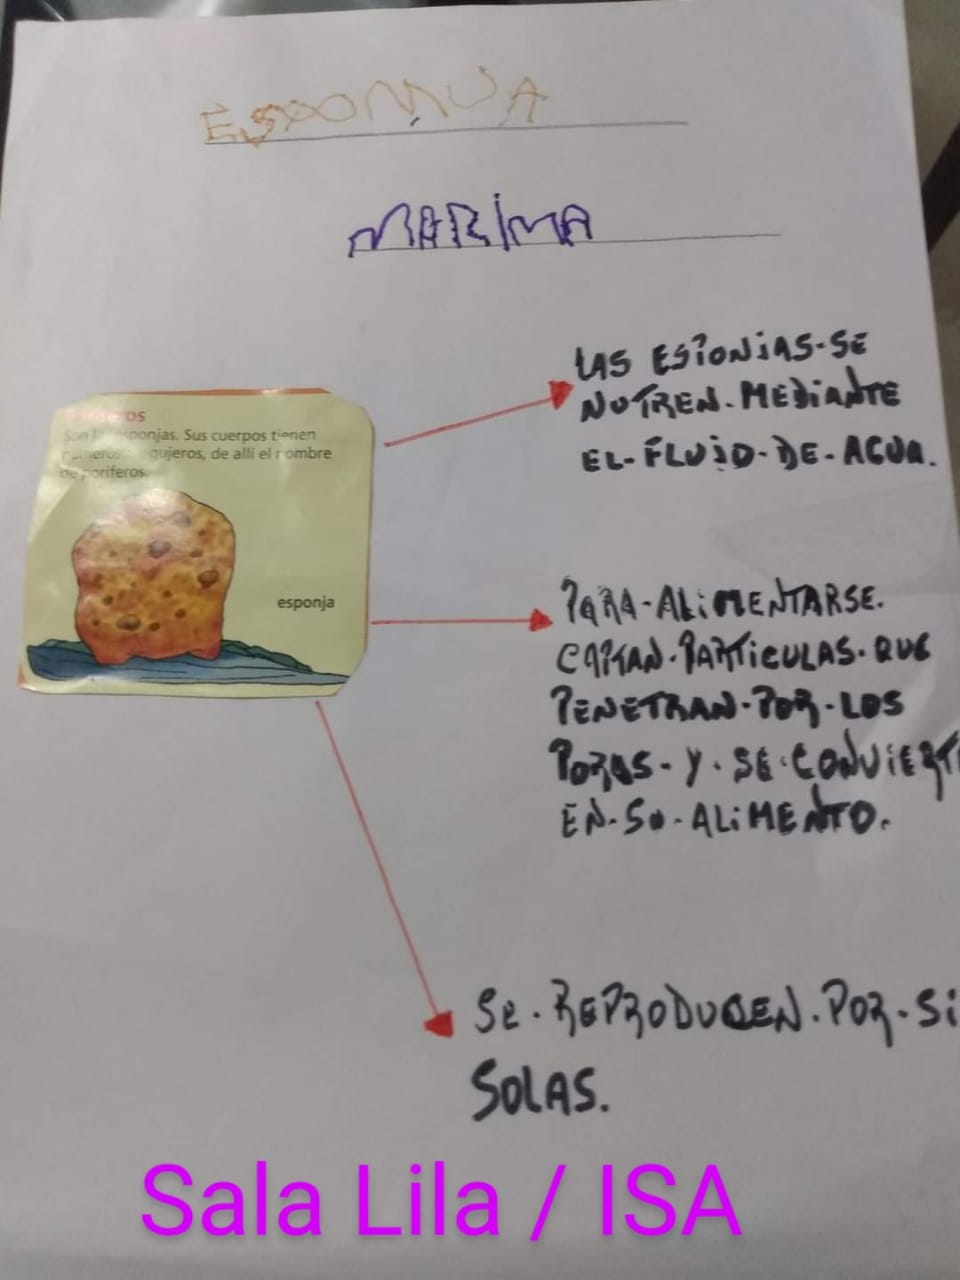 ESPONJA
MARINA
LAS ESPONJAS-SE
NUTREN-MEDIANTE
EL-FLUJO-DE-AGUA.
Son ponjas. Sus cuerpos tienen
gujeros, de allí el nombre
de poríferos.
esponja
PARA-ALIMENTARSE.
CAPTAN-PARTICULAS-QUE
PENETRAN-POR-LOS
POROS-Y-SE-CONVIERT
EN-SU-ALIMENTO.
SE-REPRODUCEN-POR-SI
SOLAS.
Sala Lila / ISA